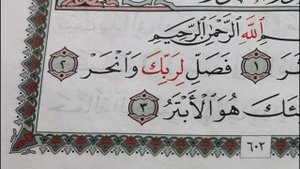 ـمِ ٱللَّهِ ٱلرَّحْمَٰنِ ٱلرَّحِيمِ
ـرَ ١ فَصَلِّ لِرَبِّكَ وَٱنْحَرْ ٢
ـئَكَ هُوَ ٱلْأَبْتَرُ ٣
٦٠٢